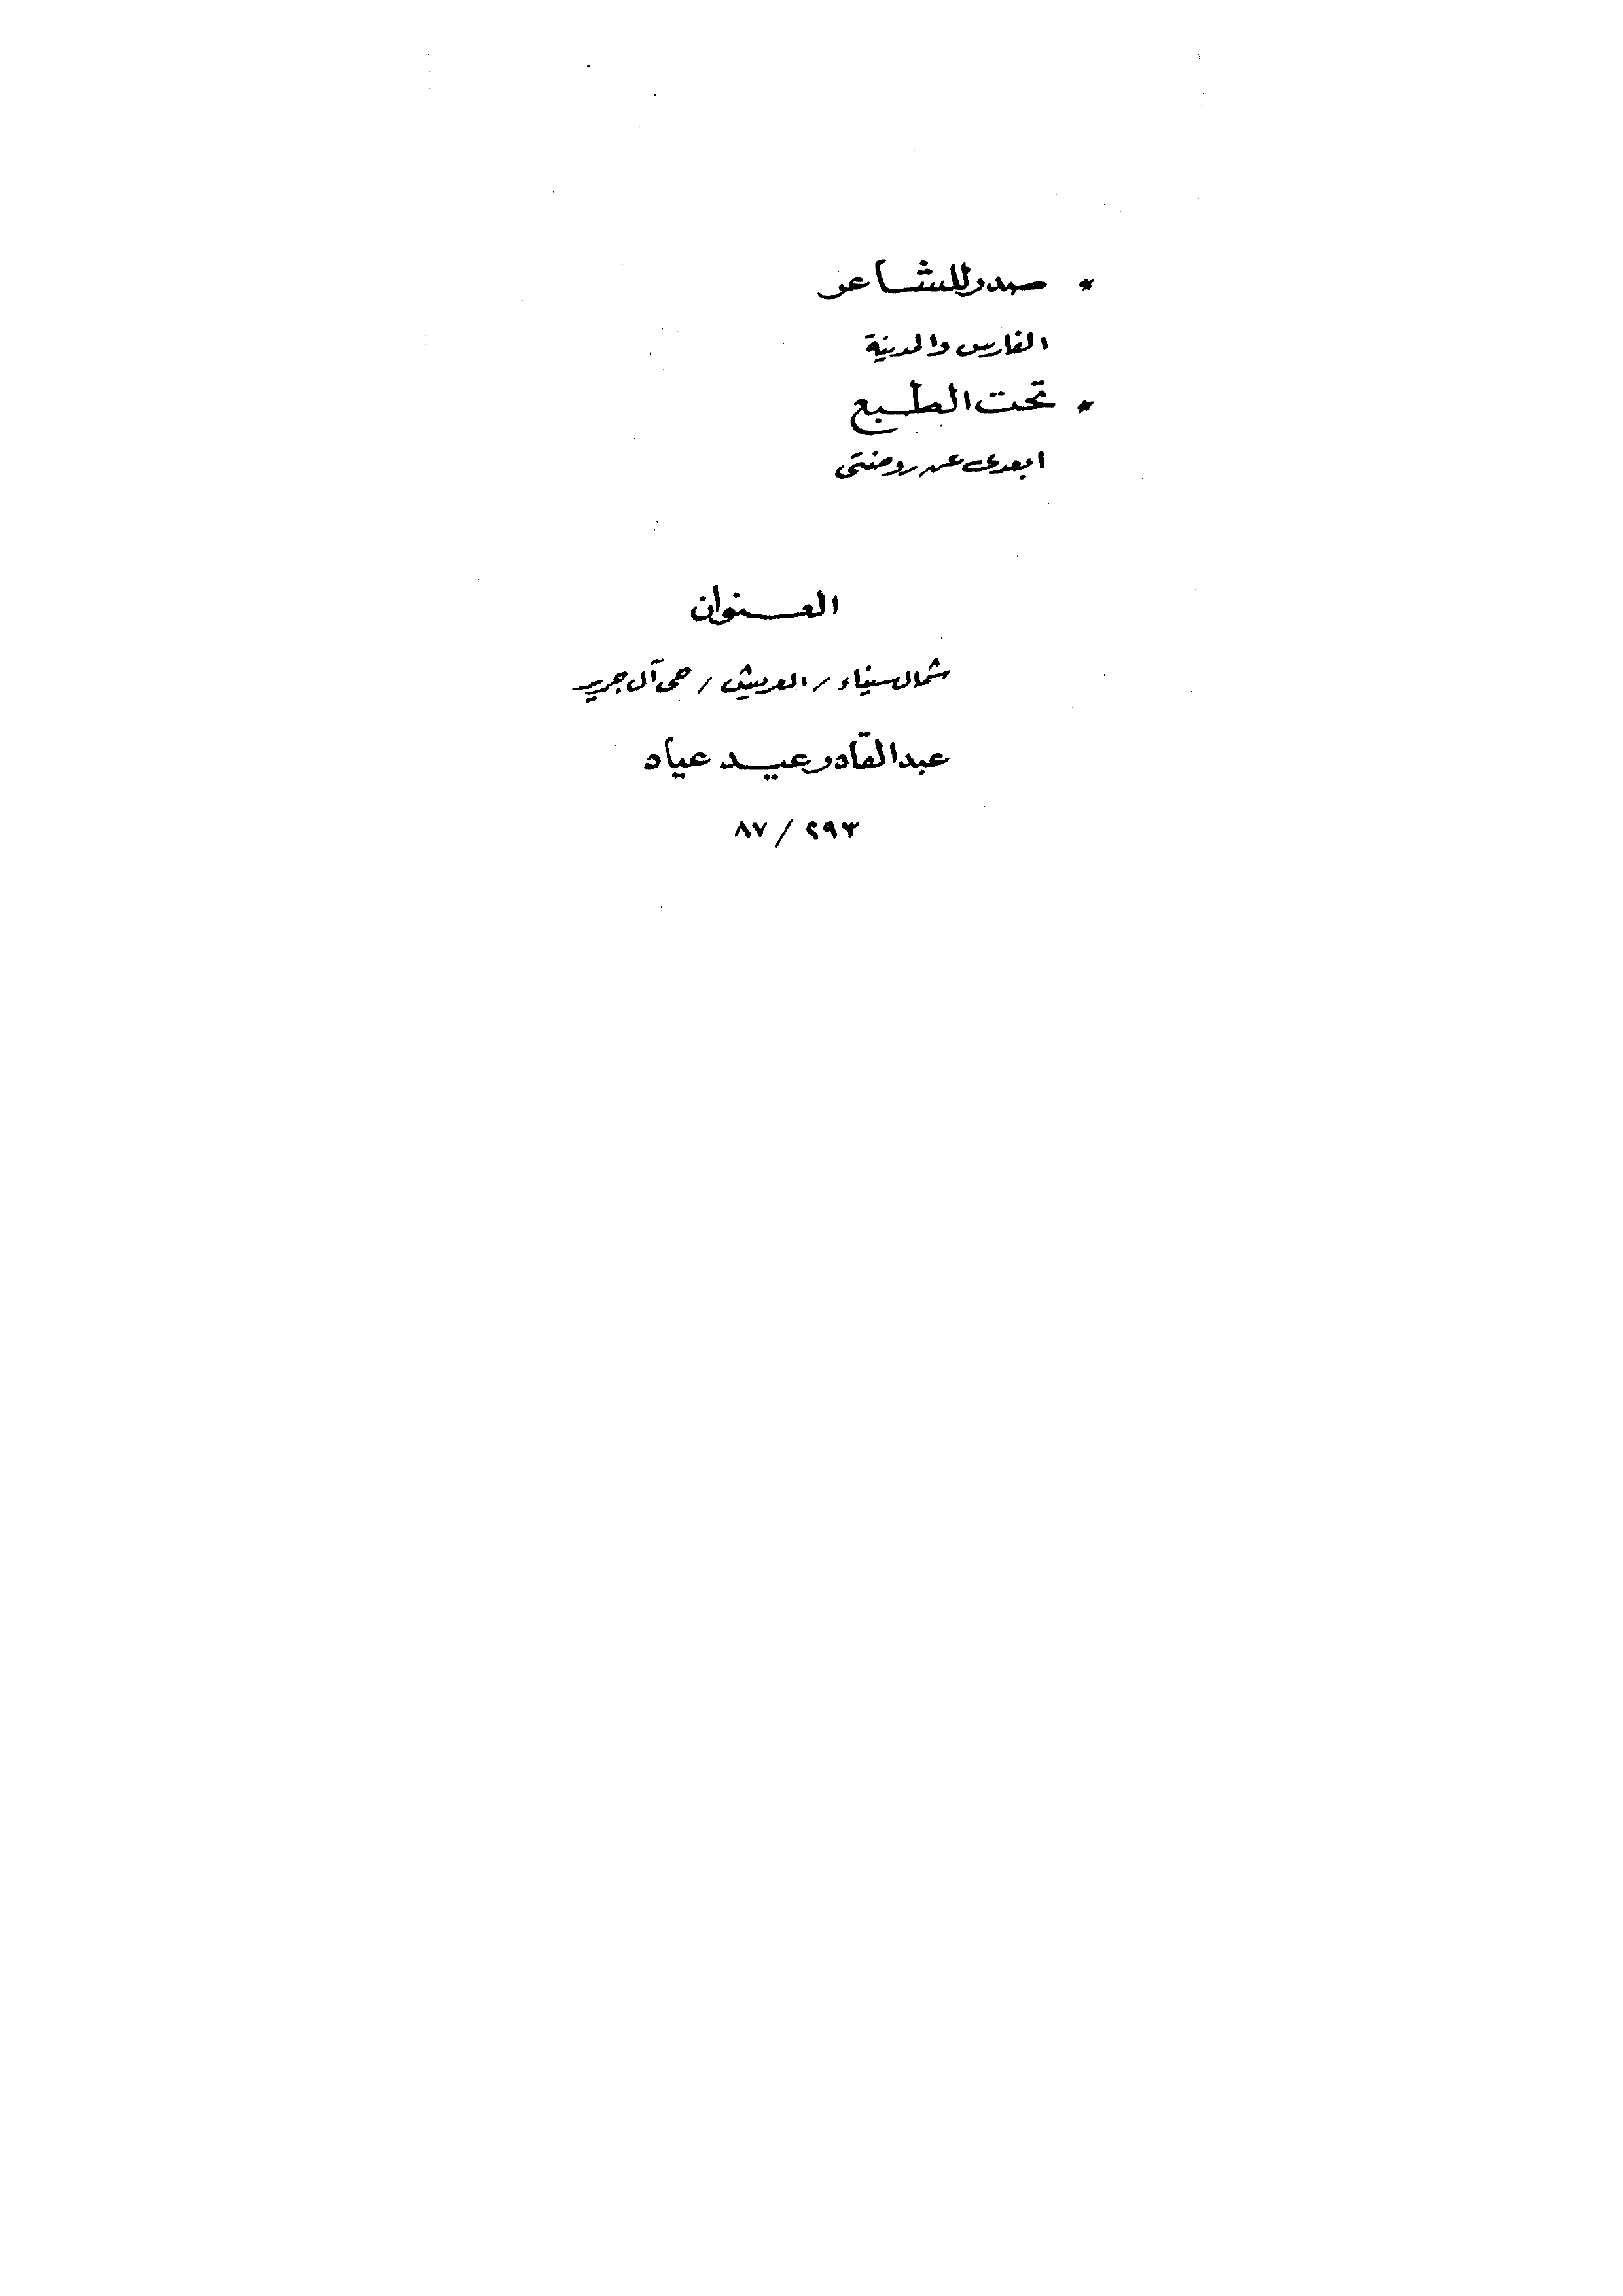 * صدر للشاعر
الفارس والمدينة
* تحت الطبع
ابعدى عن روضتى
العنوان
شمال سيناء / العريش / حى آل جرير
عبد القادر عيد عياد
٢٩٣ / ٨٧